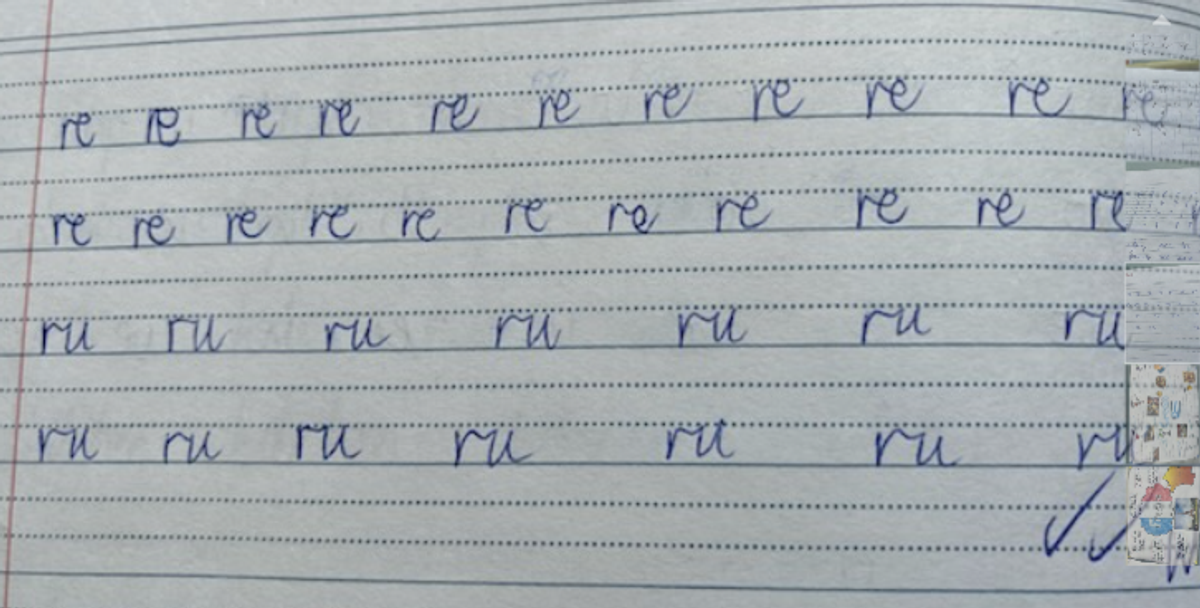 re re re re re re re re re re re
re re re re re re re re re re re
ru ru ru ru ru ru ru
ru ru ru ru ru ru ru